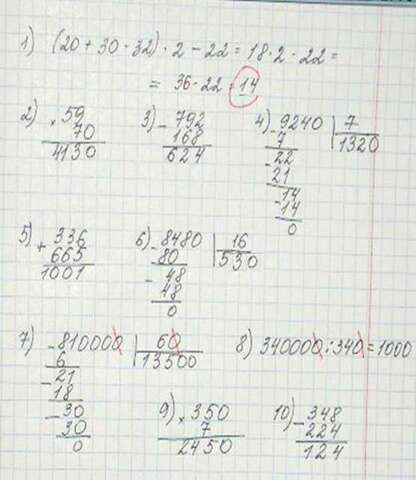 1) (20 + 30 - 32) · 2 - 22 = 18 · 2 - 22 =
= 36 - 22 = 14
2) × 59
70
4130
3) - 792
168
624
4) - 9240 | 7
7 1320
- 22
21
- 14
- 14
0
5) + 336
665
1001
6) - 8480 | 16
80 530
- 48
48
0
7) - 810000 | 60
6 13500
- 21
18
- 30
30
0
8) 340000 : 340 = 1000
9) × 350
7
2450
10) - 348
224
124